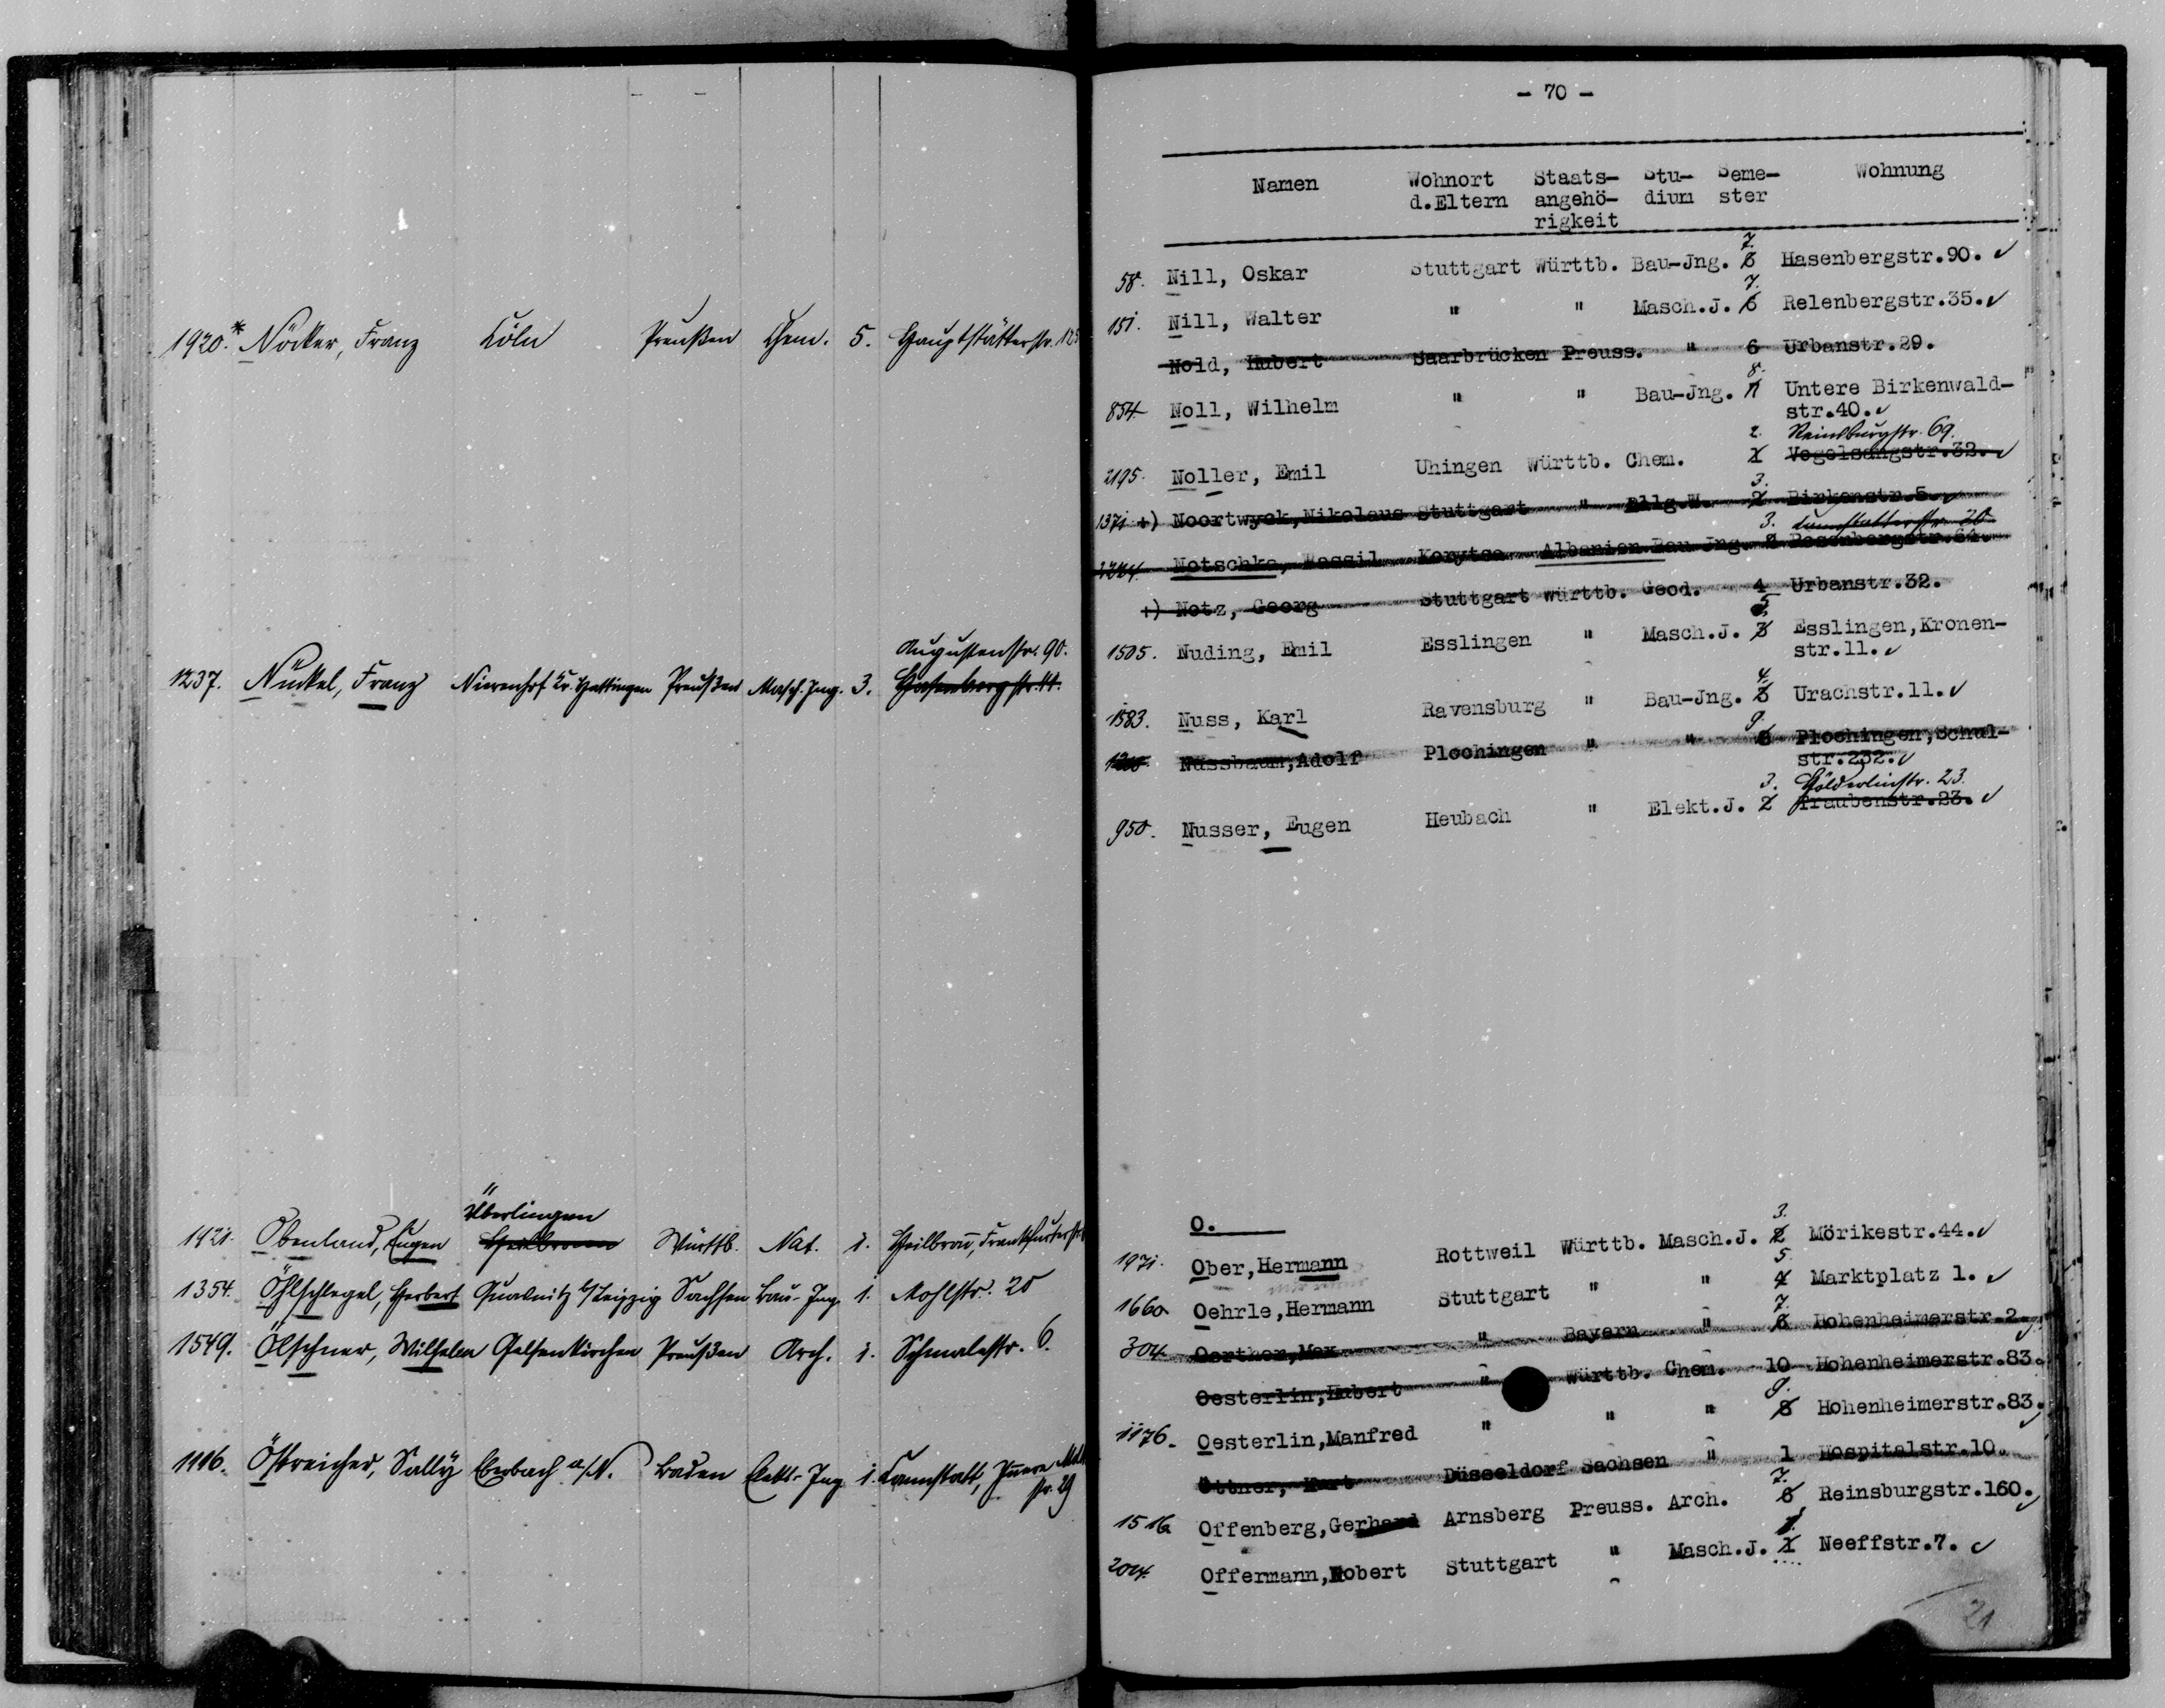 1920.* Nöcker, Franz Cöln Preußen Chem. 5. Hauptstätterstr. 123
Augustenstr. 90.
1237. Nückel, Franz Nierenhof Kr. Hattingen Preußen Masch. Ing. 3. Hasenbergstr.
Überlingen
1921. Obenland, Eugen Heilbronn Württb. Nat. 1. Heilbron̄, Frankfurterstr
1354. Öhlschlegel, Herbert b/Leipzig Sachsen Bau-Ing. 1. Mohlstr. 20
1549. Ölschner, Wilhelm Gelsenkirchen Preußen Arch. 1. Schmalestr. 6.
1106. Östreicher, Sally Eberbach a/N. Baden Elekt-Ing 1. Cannstatt, Innere
str. 29
- 70 -
Namen Wohnort Staats- Stu- Seme- Wohnung
d.Eltern angehö- dium ster
rigkeit
7.
58. Nill, Oskar Stuttgart Württb. Bau-Jng. 6 Hasenbergstr.90. ✓
7.
151. Nill, Walter " " Masch.J. 6 Relenbergstr.35. ✓
Nold, Hubert Saarbrücken Preuss. " 6 Urbanstr.29.
8.
854 Noll, Wilhelm " " Bau-Jng. 7 Untere Birkenwald-
str.40. ✓
2. Reinsburgstr. 69.
2195. Noller, Emil Uhingen Württb. Chem. 1 Vogelsangstr.32. ✓
3.
1371 +) Noortwyck, Nikolaus Stuttgart " Allg.W. 2 Birkenstr.5. ✓
3. Cannstatterstr. 20
Notschka, Wassil Korytsa Albanien Bau-Jng. 2 Rosenbergstr.
+) Notz, Georg Stuttgart Württb. Geod. 4 Urbanstr.32.
5
1505. Nuding, Emil Esslingen " Masch.J. 3 Esslingen,Kronen-
str.11. ✓
4.
1583. Nuss, Karl Ravensburg " Bau-Jng. 3 Urachstr.11. ✓
9.
Nussbaum,Adolf Plochingen " " 8 Plochingen,Schul-
str.232. ✓
3. Hölderlinstr. 23.
950. Nusser, Eugen Heubach " Elekt.J. 2 Traubenstr.23. ✓
O.
3.
1971. Ober,Hermann Rottweil Württb. Masch.J. 2 Mörikestr.44. ✓
5.
1660 Oehrle,Hermann Stuttgart " " 4 Marktplatz 1. ✓
7.
304. Oerthen,Max " Bayern " 6 Hohenheimerstr.2 ✓
Oesterlin,Hubert " Württb. Chem. 10 Hohenheimerstr.83.
9.
1176. Oesterlin,Manfred " " " 8 Hohenheimerstr.83. ✓
Öttner, Kurt Düsseldorf Sachsen " 1 Hospitalstr.10.
7.
1516 Offenberg,Gerhard Arnsberg Preuss. Arch. 6 Reinsburgstr.160. ✓
204. Offermann,Robert Stuttgart " Masch.J. 1 Neeffstr.7. ✓
21